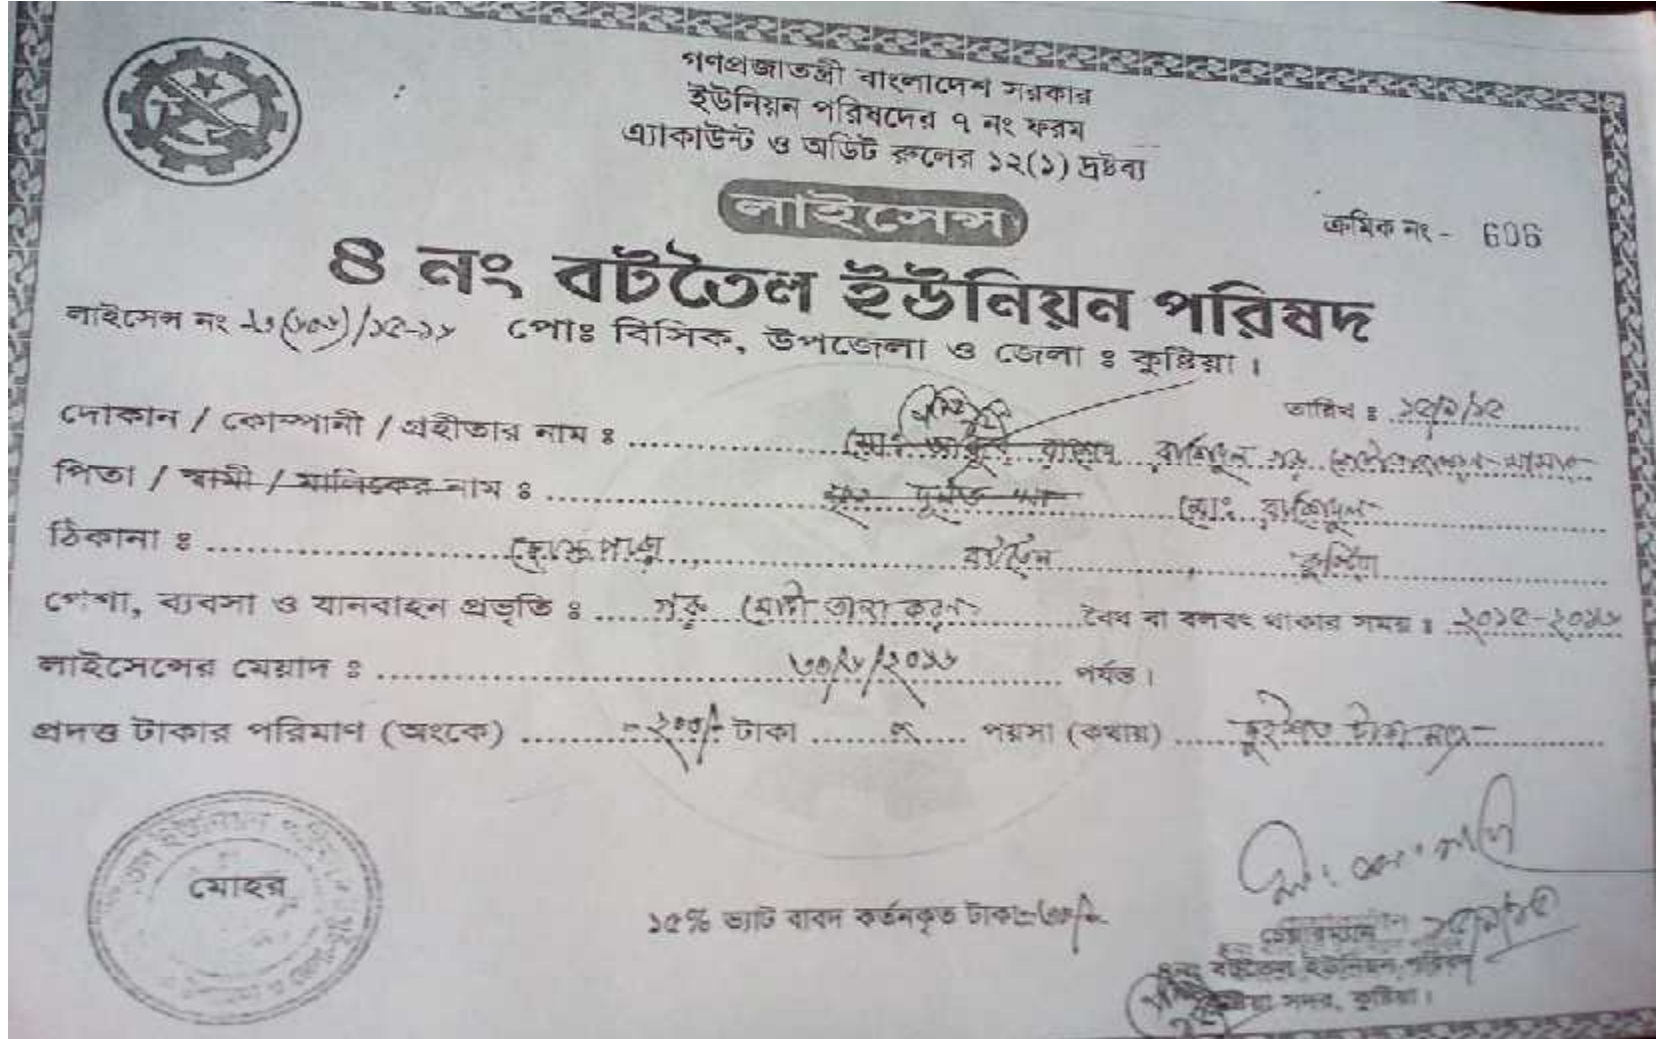 গণপ্রজাতন্ত্রী বাংলাদেশ সরকার
ইউনিয়ন পরিষদের ৭ নং ফরম
এ্যাকাউন্ট ও অডিট রুলের ১২(১) দ্রষ্টব্য
লাইসেন্স
ক্রমিক নং - 606
৪ নং বটতৈল ইউনিয়ন পরিষদ
লাইসেন্স নং /১৫-১৬ পোঃ বিসিক, উপজেলা ও জেলা ঃ কুষ্টিয়া ।
তারিখ ঃ
দোকান / কোম্পানী / গ্রহীতার নাম ঃ রাশিদুল গরু
পিতা / স্বামী / মালিকের নাম ঃ মোঃ রাশিদুল
ঠিকানা ঃ বটতৈল, কুষ্টিয়া
পেশা, ব্যবসা ও যানবাহন প্রভৃতি ঃ গরু মোটা তাজা করন বৈধ বা বলবৎ থাকার সময় ঃ ২০১৫-২০১৬
লাইসেন্সের মেয়াদ ঃ ৩০/৬/২০১৬ পর্যন্ত ।
প্রদত্ত টাকার পরিমাণ (অংকে) =২০০/- টাকা পয়সা (কথায়) দুইশত টাকা মাত্র
মোহর
১৫% ভ্যাট বাবদ কর্তনকৃত টাকা=৩০/-
চেয়ারম্যান
বটতৈল ইউনিয়ন পরিষদ
কুষ্টিয়া সদর, কুষ্টিয়া ।